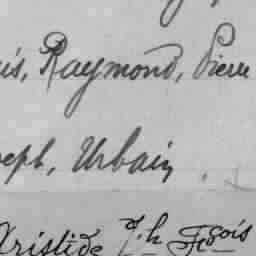 is, Raymond, Pierre
seph, Urbain.
Aristide J.h Fçois